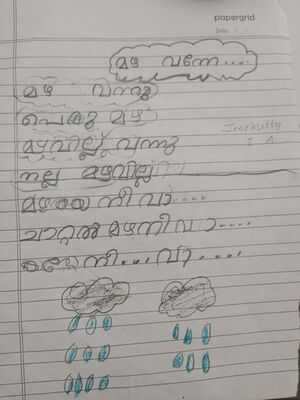 papergrid
Date: / /
മഴ വന്നേ....
മഴ വന്നു
പെരു മഴ
മഴവില്ല് വന്നു
നല്ല മഴവില്ല്
Jostkutty
I A
മഴയെ നീ വാ....
ചാറ്റൽ മഴ നീ വാ....
നീ.... വാ....